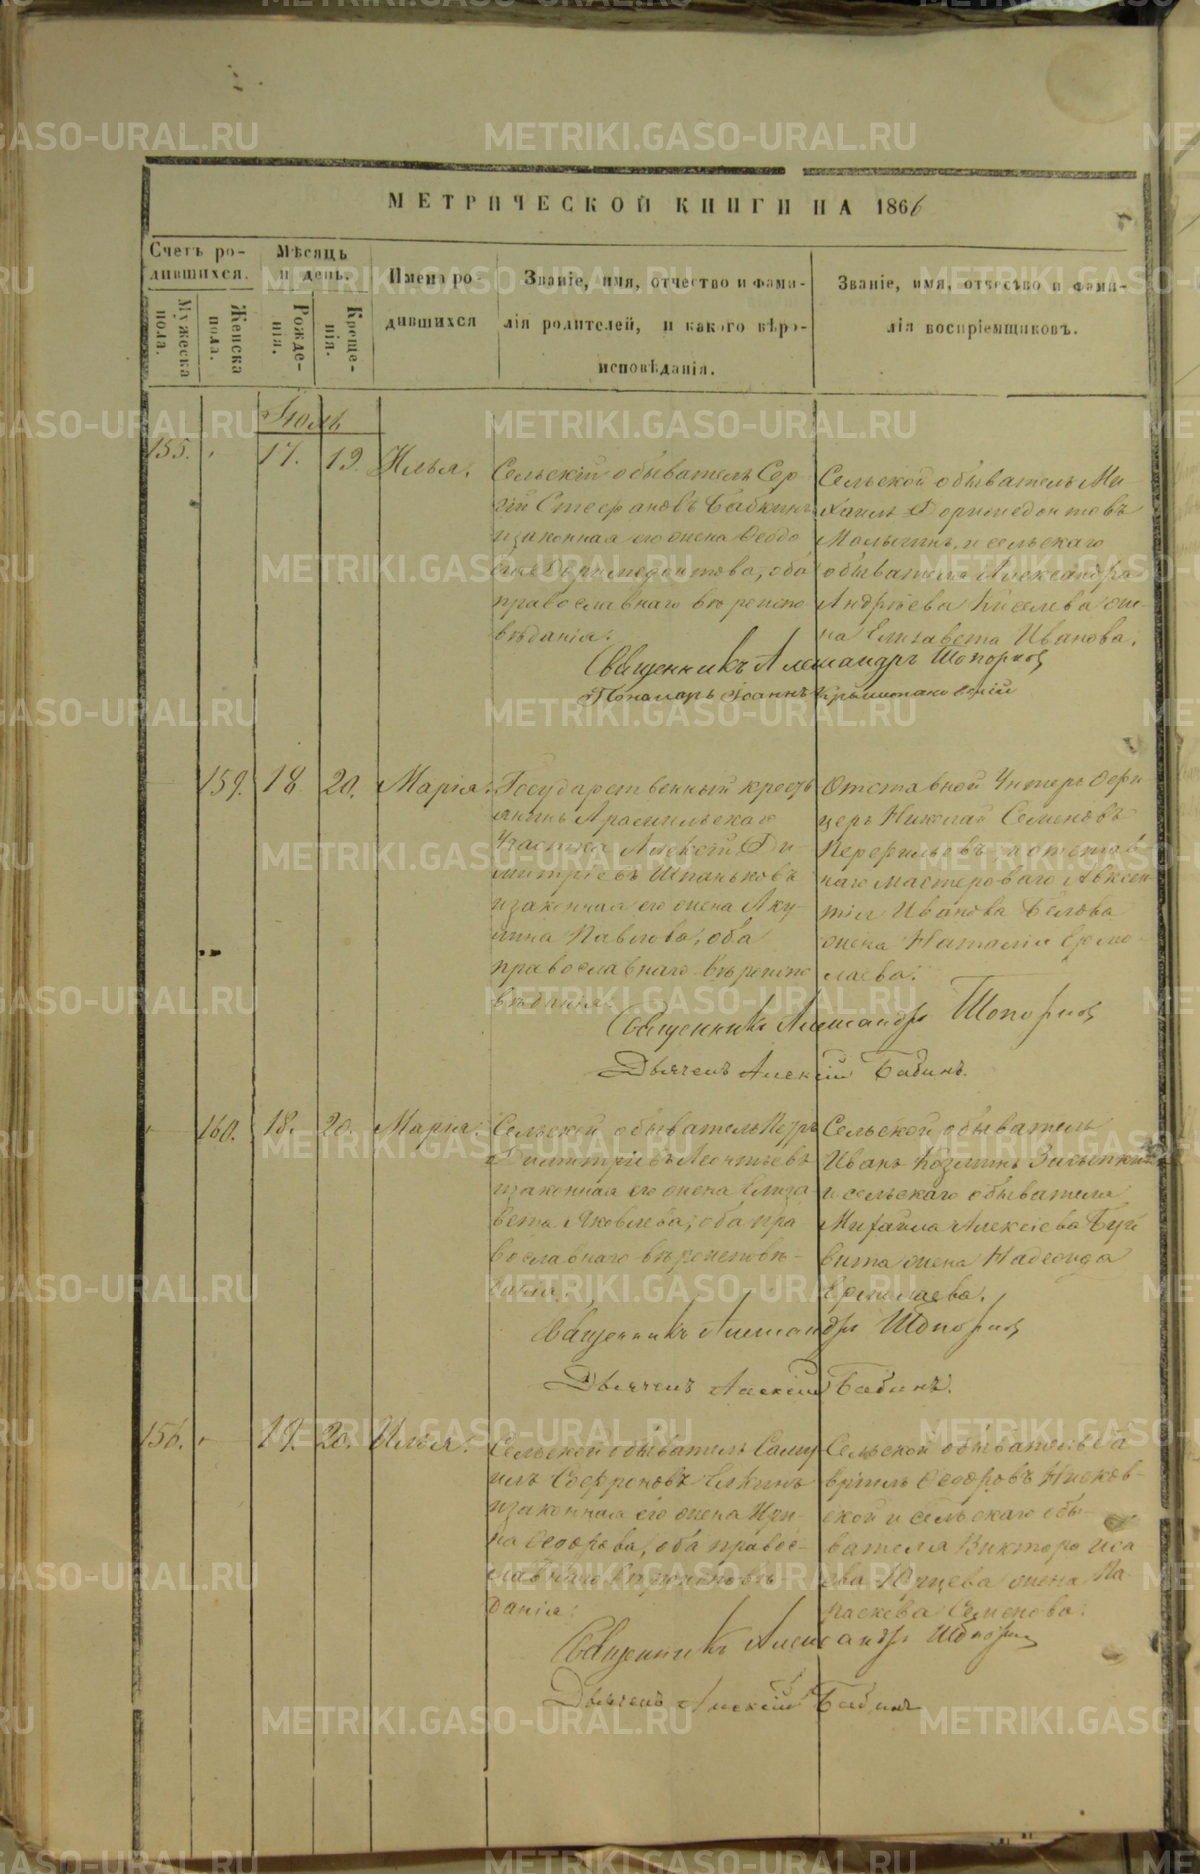 МЕТРИЧЕСКОЙ КНИГИ НА 1866
Счетъ ро-
дившихся.
Мужеска
пола.
Женска
пола.
Мѣсяцъ
и день.
Рожде-
нія.
Креще-
нія.
Имена ро-
дившихся
Званіе, имя, отчество и фами-
лія родителей, и какого вѣро-
исповѣданія.
Званіе, имя, отчество и фами-
лія воспріемщиковъ.
Іюль
155. 17. 19. Илья.
Сельскій обыватель Сер
гій Стефановъ Бабкинъ
и законная его жена Ѳеодо
сія Доримедонтова, оба
православнаго вѣроиспо
вѣданія.
Сельской обыватель Ми-
хаилъ Доримедонтовъ
Малыгинъ, и сельскаго
обывателя Александра
Андріева Киселева же-
на Елизавета Иванова.
Священникъ Александръ Топорков
Пономарь Іоаннъ
159. 18 20. Марія.
Государственный кресть
янинъ Арамильскаго
Участка Алексій Ди-
митріевъ Шпаньковъ
и законная его жена Аку-
лина Павлова, оба
православнаго вѣроиспо
вѣданія.
Отставной Унтеръ Офи
церъ Николай Семеновъ
Перфильевъ и отстав
наго мастероваго Авксен
тія Иванова Бѣлова
жена Наталія Ермо-
лаева.
Священникъ Александръ Топорков
Дьячекъ Алексій Бабинъ.
160. 18. 20. Марія
Сельской обыватель Петръ
Димитріевъ Леонтьевъ
и законная его жена Елиза
вета Яковлева, оба пра
вославнаго вѣроисповѣ-
данія.
Сельской обыватель
Иванъ Козминъ
и сельскаго обывателя
Михаила Алексіева
жена Надежда
Ермолаева.
Священникъ Александръ Топорков
Дьячекъ Алексій Бабинъ.
156. 19. 20. Илья.
Сельской обыватель Саму
илъ Софроновъ Елкинъ
и законная его жена Ири-
на Ѳедорова, оба правос-
лавнаго вѣроисповѣ
данія.
Сельской обыватель Га
вріилъ Ѳедоровъ
и сельскаго обы-
вателя Виктора Иса
ева Юрцева жена Па
раскева Семенова.
Священникъ Александръ Топорков
Дьячекъ Алексій Бабинъ
METRIKI.GASO-URAL.RU